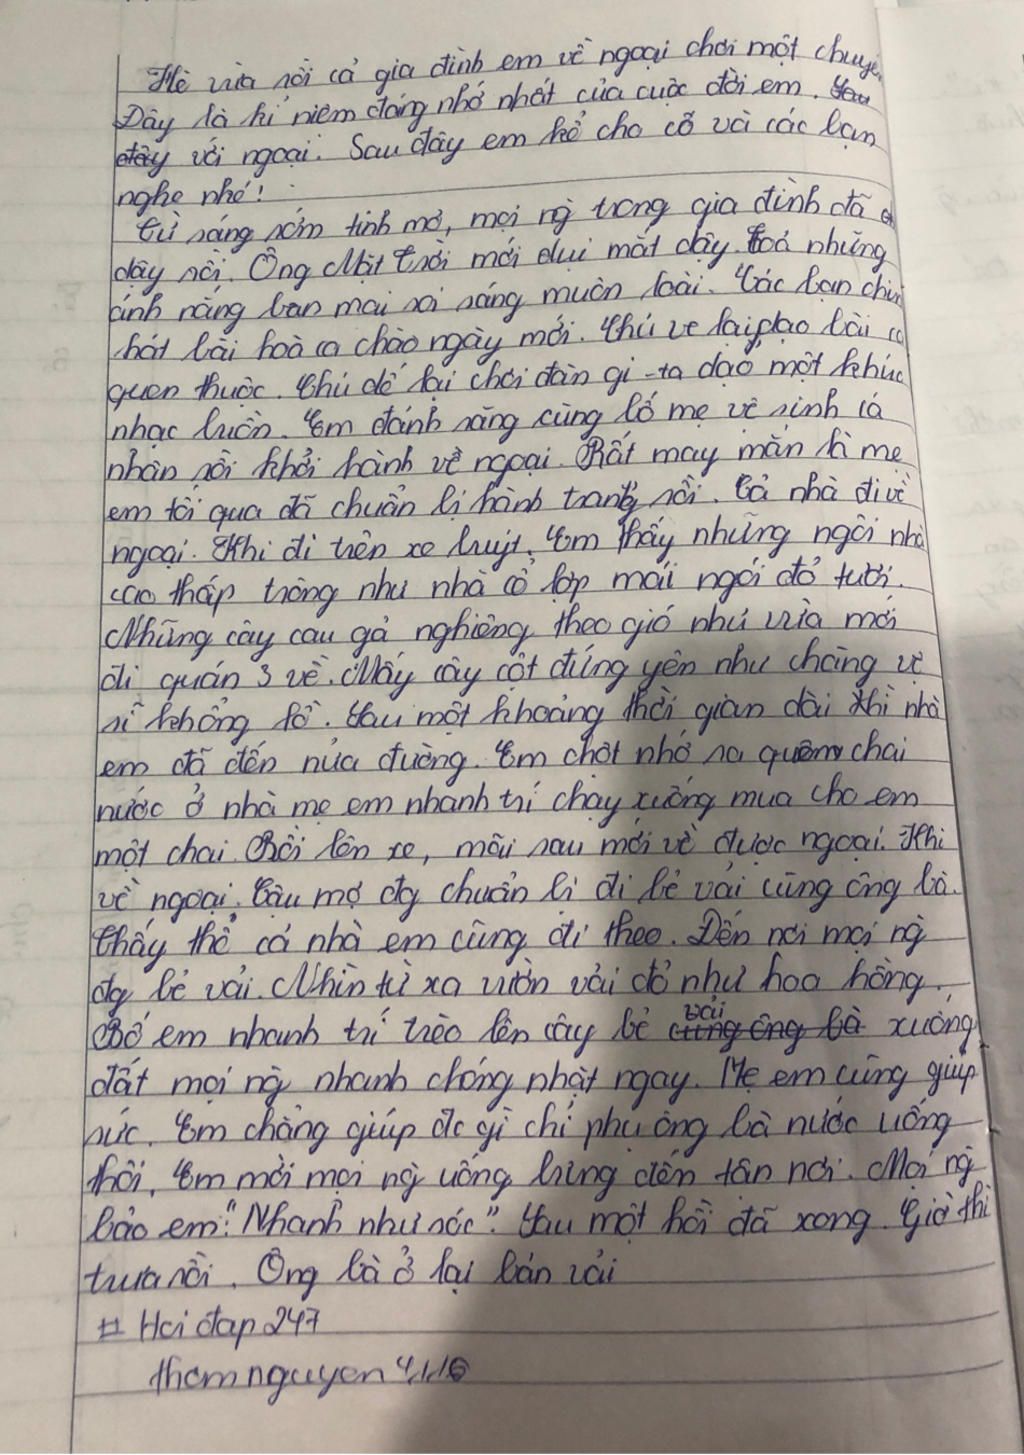 Hè vừa rồi cả gia đình em về ngoại chơi một chuyến
Đây là kỉ niệm đáng nhớ nhất của cuộc đời em. Sau
đây với ngoại. Sau đây em kể cho cô và các bạn
nghe nhé!
Từ sáng sớm tinh mơ, mọi ng trong gia đình đã
dậy rồi. Ông Mặt Trời mới dụi mắt dậy. Toả những
ánh nắng ban mai soi sáng muôn loài. Các bạn chim
hát bài hoà ca chào ngày mới. Chú ve lại dạo bài ca
quen thuộc. Chú dế lại chơi đàn gi-ta dạo một khúc
nhạc buồn. Em đánh răng cùng bố mẹ vệ sinh cá
nhân rồi khởi hành về ngoại. Rất may mắn là mẹ
em tối qua đã chuẩn bị hành trang rồi. Cả nhà đi về
ngoại. Khi đi trên xe buýt. Em thấy những ngôi nhà
cao thấp trông như nhà cổ lợp mái ngói đỏ tươi.
Những cây cau gả nghiêng theo gió như vừa mới
đi quán 3 về. Mấy cây cột đứng yên như chàng vệ
sĩ khổng lồ. Sau một khoảng thời gian dài thì nhà
em đã đến nửa đường. Em chợt nhớ ra quên chai
nước ở nhà mẹ em nhanh trí chạy xuống mua cho em
một chai. Rồi lên xe, mãi sau mới về được ngoại. Khi
về ngoại. Cậu mợ đg chuẩn bị đi bẻ vải cùng ông bà.
Thấy thế cả nhà em cũng đi theo. Đến nơi mọi ng
đg bẻ vải. Nhìn từ xa vườn vải đỏ như hoa hồng.
Bố em nhanh trí trèo lên cây bẻ vải cùng ông bà xuống
đất mọi ng nhanh chóng nhặt ngay. Mẹ em cũng giúp
sức. Em chẳng giúp đc gì chỉ phụ ông bà nước uống
thôi. Em mời mọi ng uống bưng đến tận nơi. Mọi ng
bảo em: "Nhanh như sóc". Sau một hồi đã xong. Giờ thì
trưa rồi. Ông bà ở lại bán vải
# Hoi đap 247
thomnguyen